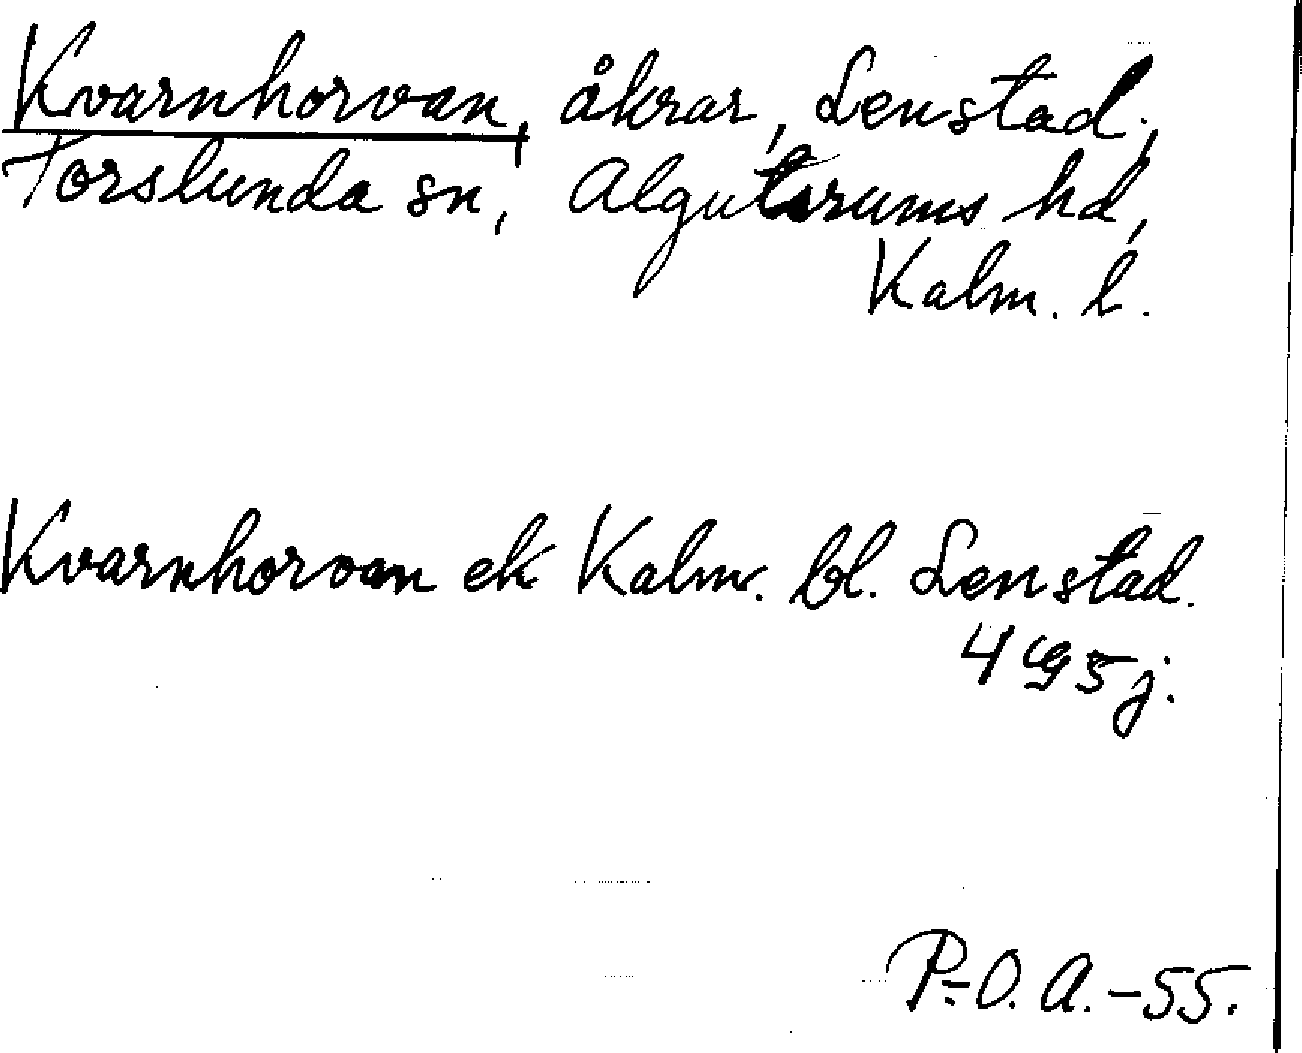 Kvarnhorvan, åkrar, Lenstad,
Torslunda sn, Algutsrums hd,
Kalm. l.
Kvarnhorvan ek Kalm. bl. Lenstad.
4 5 j.
P.-O. A. -55.